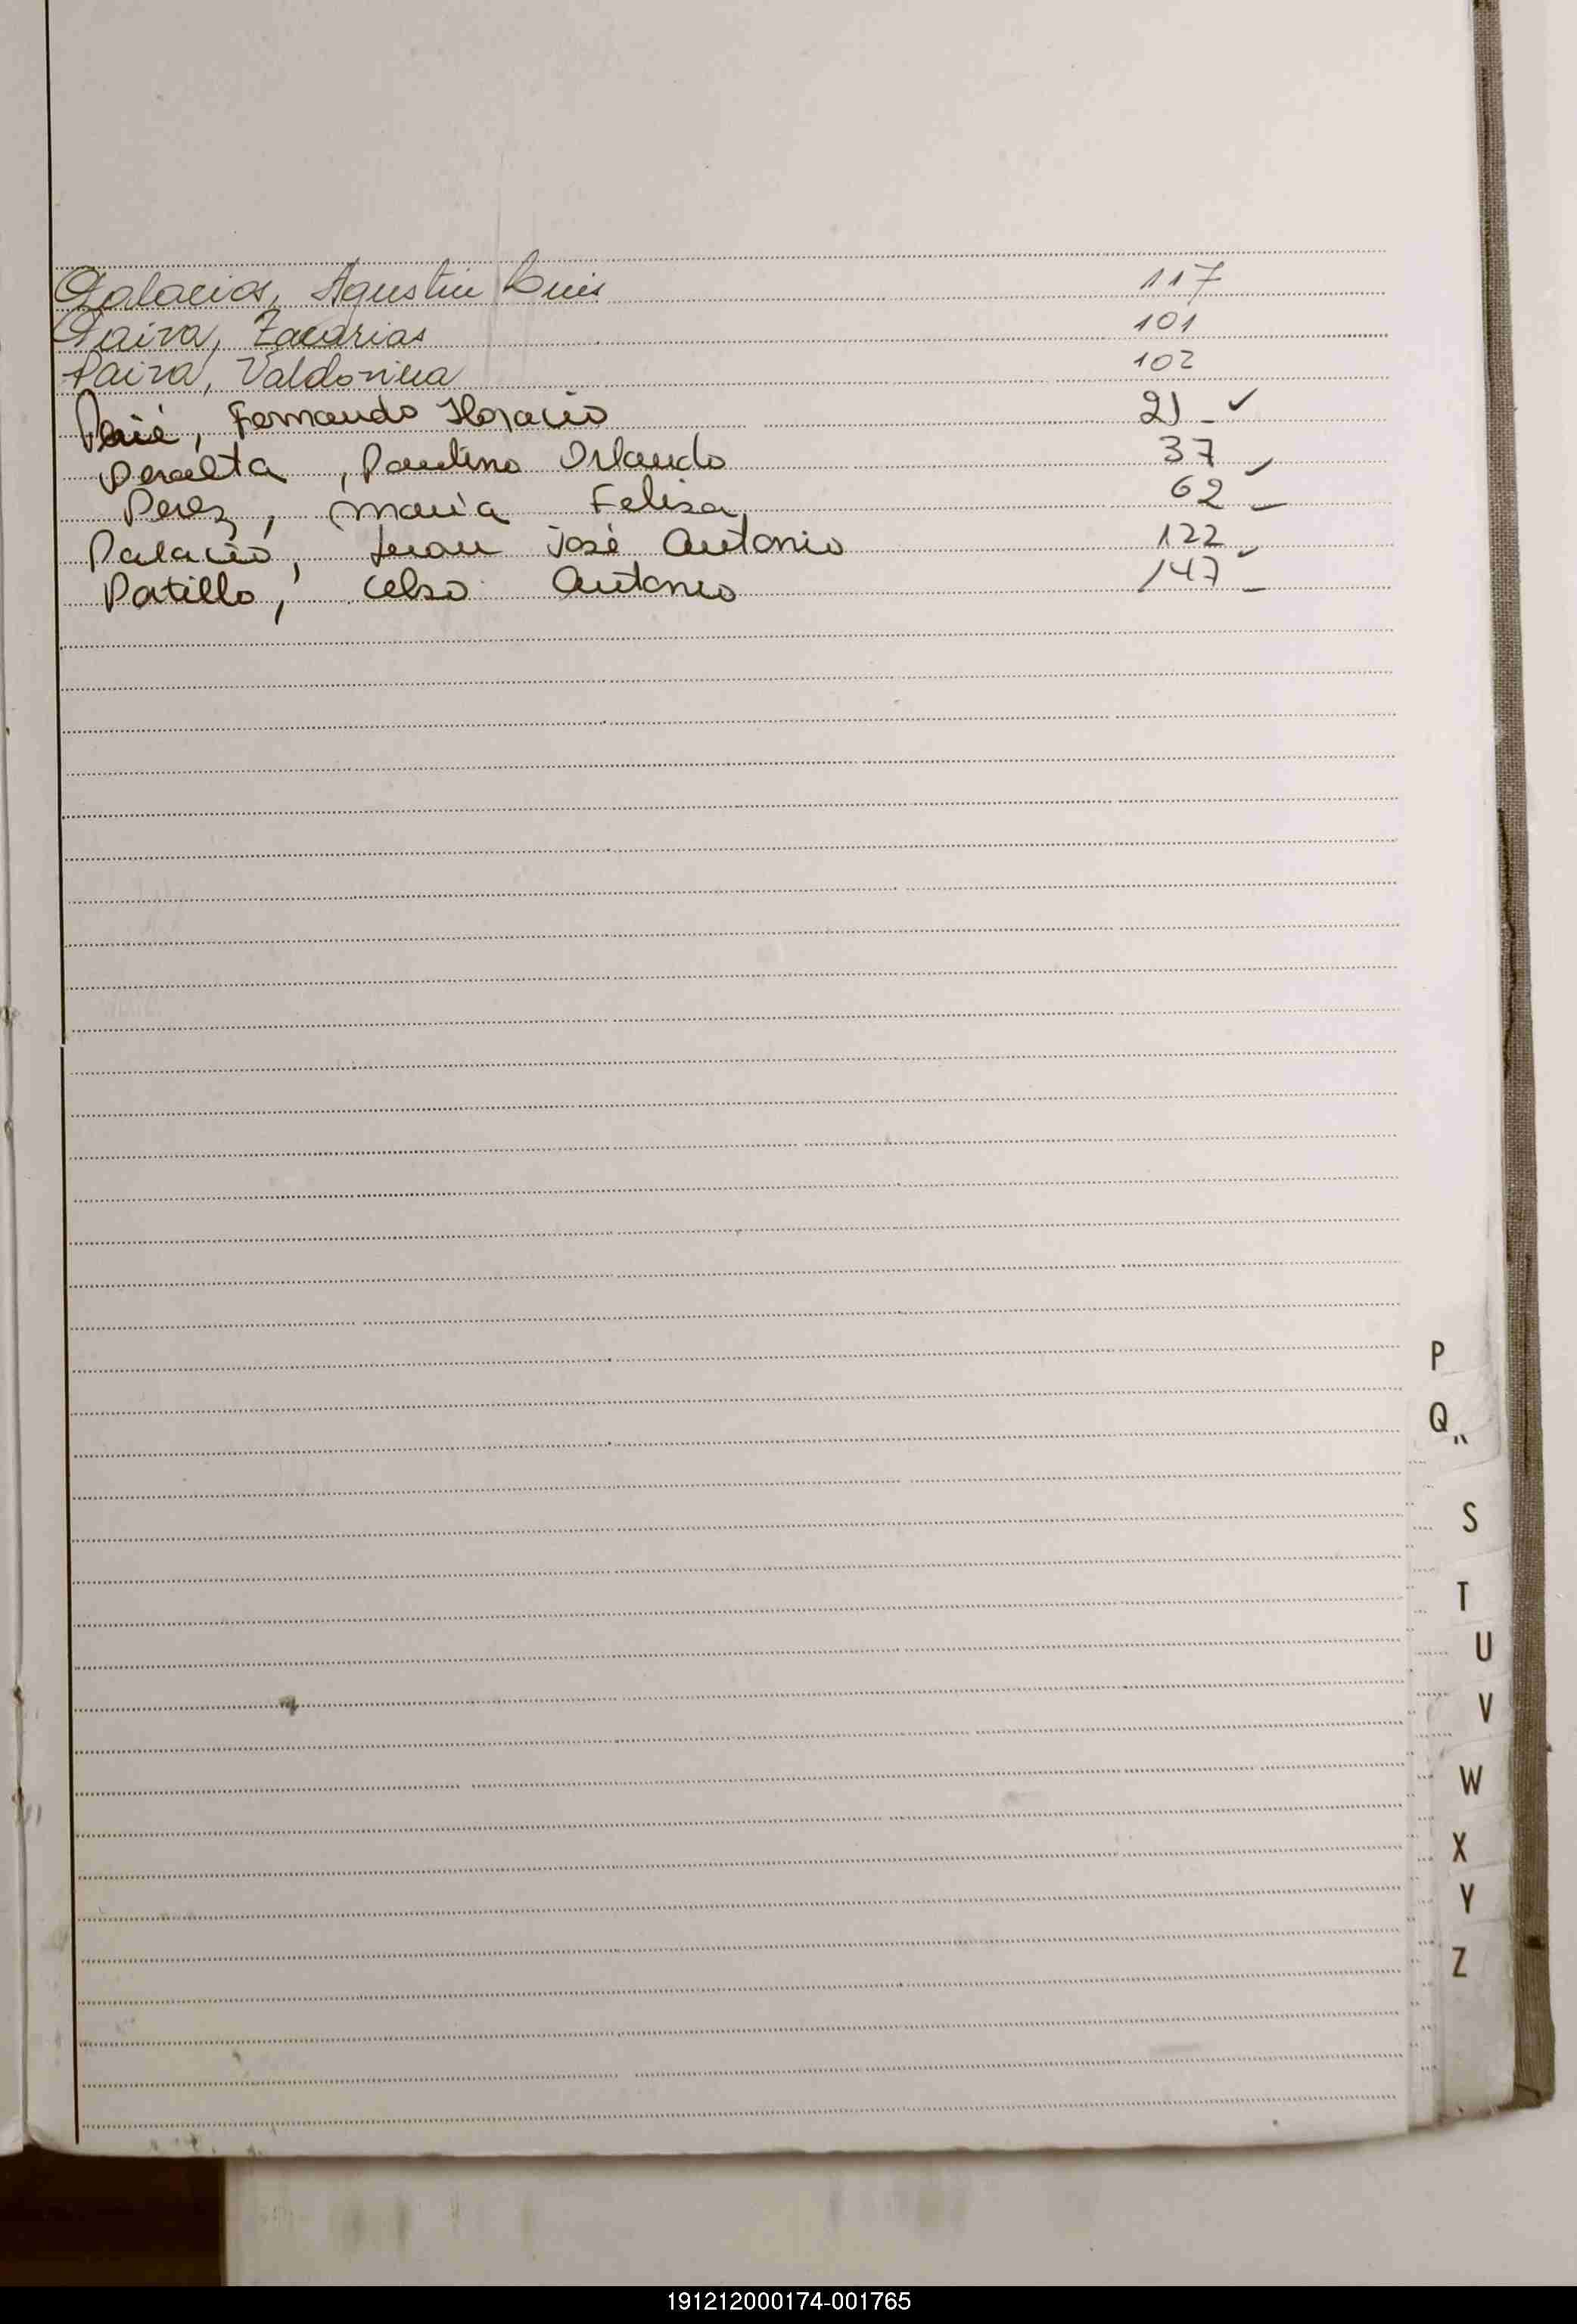 Palacios, Agustin Luis 117
Paiva, Zacarias 101
Paiva, Valdovina 102
Fernando Horacio 21 - ✓
Peralta, Paulino Orlando 37 ✓
Perez, Maria Felisa 62 -
Palacio, Juan José Antonio 122 ✓
Patillo, Celso Antonio 147 -
P
Q
S
T
U
V
W
X
Y
Z
191212000174-001765